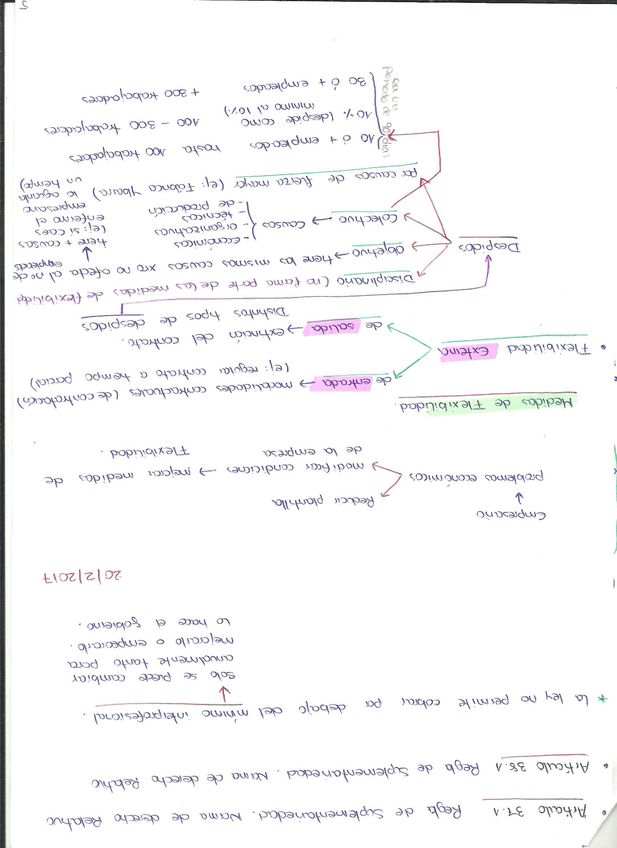 • Artículo 37.1 Regla de Suplementariedad. Norma de derecho Relativo
• Artículo 38.1 Regla de Suplementariedad. Norma de derecho Relativo
* La ley no permite cobrar por debajo del mínimo interprofesional.
solo se puede cambiar
anualmente tanto para
mejorarlo o empeorarlo.
lo hace el gobierno.
20/2/2017
Empresario
↓
problemas económicos
Reducir plantilla
modificar condiciones → mejorar medidas de
de la empresa Flexibilidad.
Medidas de Flexibilidad.
• Flexibilidad Externa
de entrada → modalidades contractuales (de contratación)
(ej: regular contrato a tiempo parcial)
de salida → extinción del contrato.
Distintos tipos de despidos
Despidos
Disciplinario (no forma parte de las medidas de flexibilidad)
Objetivo → tiene las mismas causas xro no afecta al nº de
empleados
↓
tiene + causas
(ej: si caes
enfermo el
empresario
lo aguanta
un tiempo)
Colectivo → causas
- económicas
- organizativas
- técnicas
- de producción
por causas de fuerza mayor (ej: Fábrica Ybarra)
10 ó + empleados hasta 100 trabajadores
10% (despide como 100 - 300 trabajadores
mínimo al 10%)
30 ó + empleados + 300 trabajadores
en un
periodo de 90 días
5